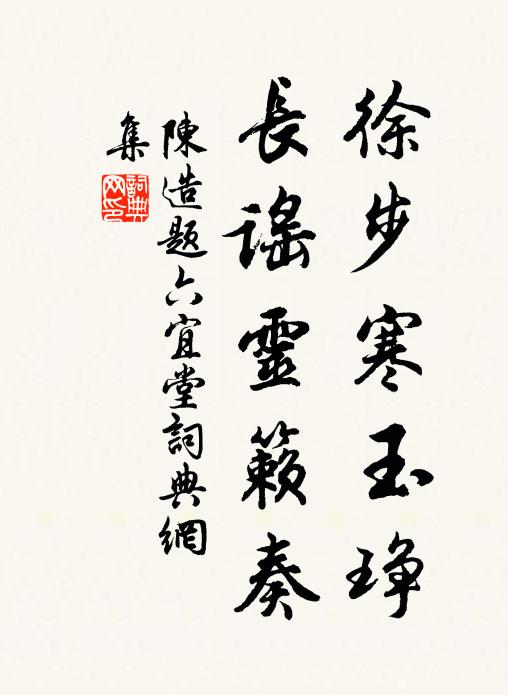 徐步寒玉琤
長謠靈籟奏
陳造題六宜堂詞典網
集
詞典网印